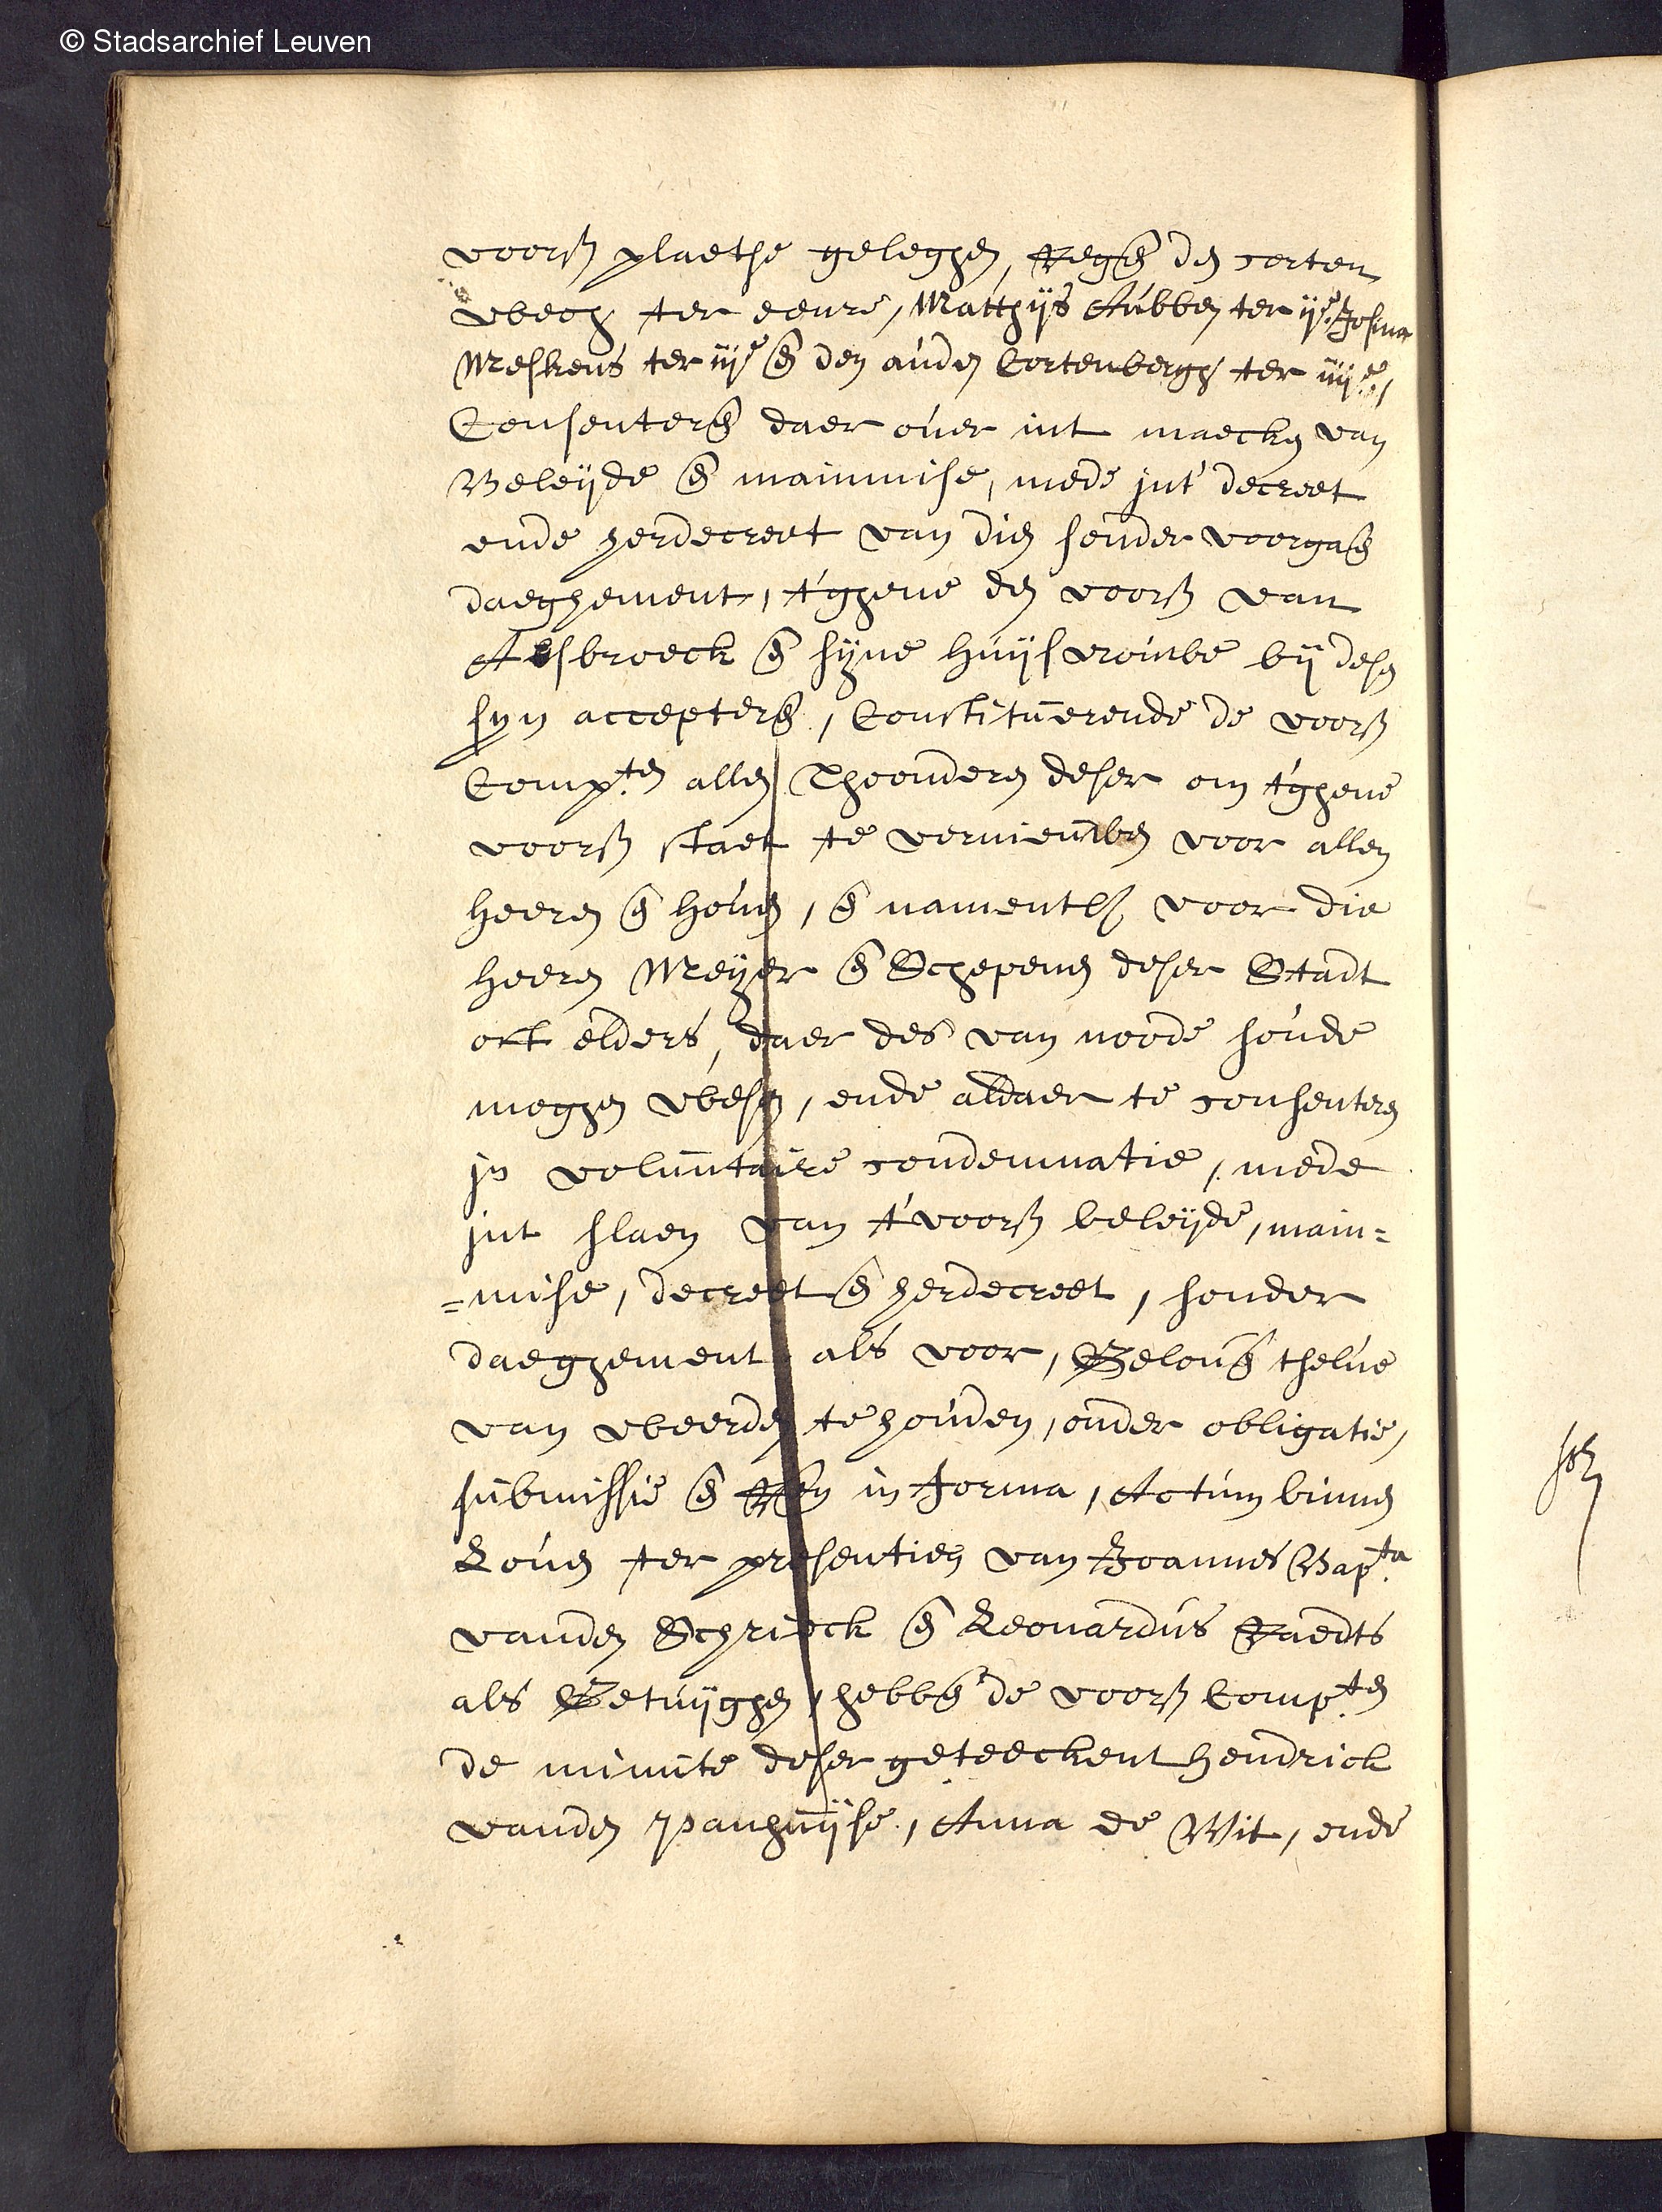 © Stadsarchief Leuven
voors plaetse geleghen, Regen den corten
wech ter eenre, Matthijs Aubben ter ije Josina
Meskens ter iije en den auden Cortenbergh ter iiije,
Consenteren daer over int maecken van
Beleijde en mainmise, mede jnt decreet
ende herdecreet van dien sonder voorgaen
daeghement, t'ghene den voors van
Aelsbroeck en sijne huijsvrouwe bij desen
syn accepteren, Constituerende de voors
Compten allen Thoonderen deser om t'ghene
voors staet te vernieuwen voor allen
heeren en hoven, en namentl voor die
heeren Meijer en Schepenen deser Stadt
oft elders, daer des van noode soude
moghen wesen, ende aldaer te consenteren
jn voluntaire condemnatie, mede
jnt slaen van t'voors beleijde, main=
=mise, decreet en herdecreet, sonder
daeghement als voor, Geloven tselve
van weerden te houden, onder obligatie,
submissie en Ren in forma, Actum binnen
Loven ter presentien van Joannes Bapta
vanden Schrieck en Leonardus Raedts
als Getuijghen, hebben de voors Compten
de minute deser geteeckent Hendrick
vanden Panhuijse, Anna de Wit, ende